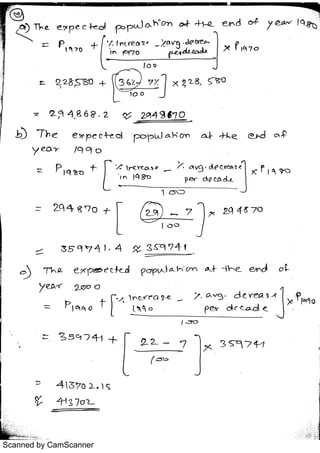 a) The expected population at the end of year 1980
= P1970 + [% increase in 1970 - % avg. decrease per decade / 100] x P1970
= 228,580 + [36% - 7% / 100] x 228,580
= 294,868.2 ≈ 2949870
b) The expected population at the end of
year 1990
= P1980 + [% increase in 1980 - % avg. decrease per decade / 100] x P1980
= 294870 + [29 - 7 / 100] x 294870
= 359741.4 ≈ 359741
c) The expected population at the end of
year 2000
= P1990 + [% increase 1990 - % avg. decrease per decade / 100] x P1990
= 359741 + [22 - 7 / 100] x 359741
= 413702.15
≈ 413702
Scanned by CamScanner